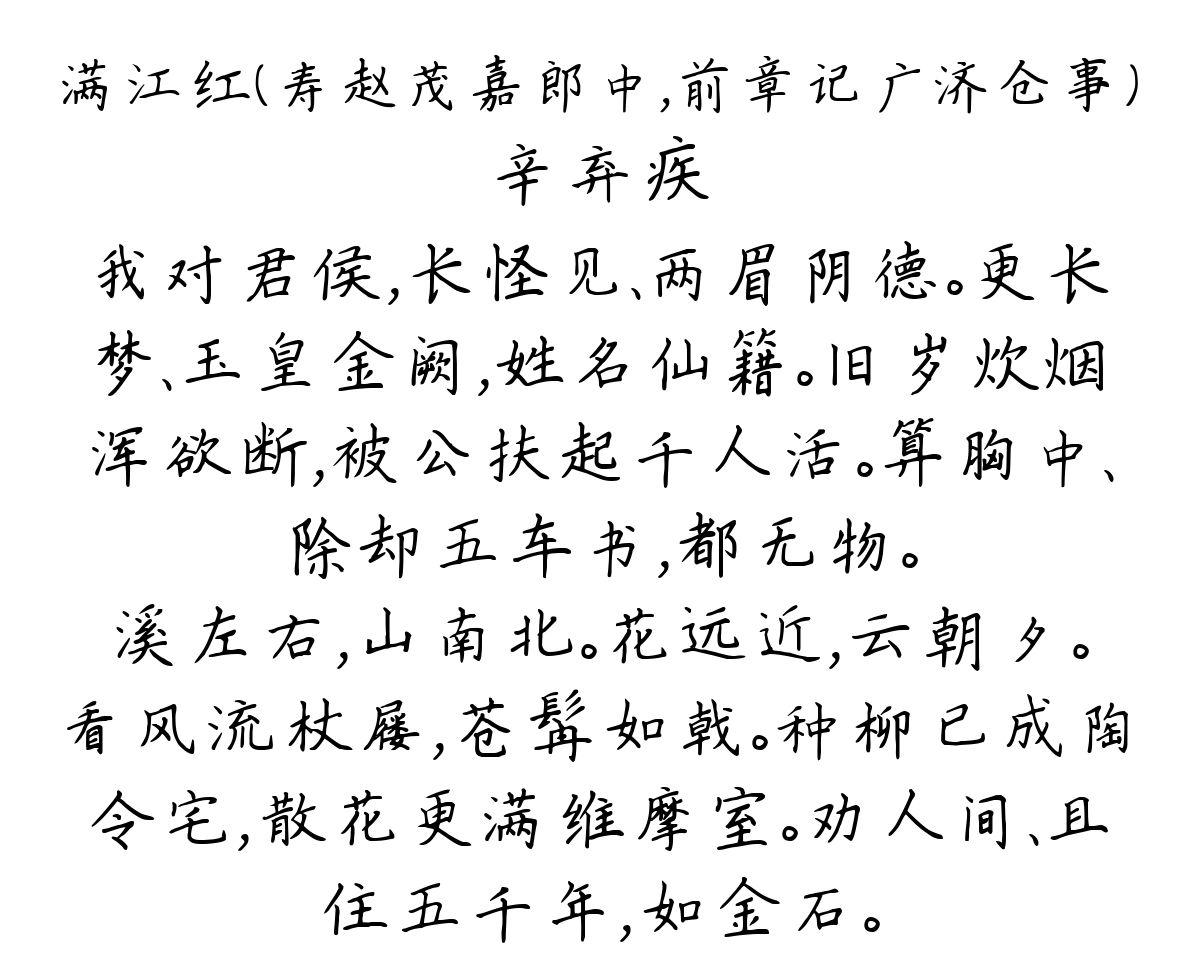 满江红(寿赵茂嘉郎中,前章记广济仓事)
辛弃疾
我对君侯,长怪见、两眉阴德。更长
梦、玉皇金阙,姓名仙籍。旧岁炊烟
浑欲断,被公扶起千人活。算胸中、
除却五车书,都无物。
溪左右,山南北。花远近,云朝夕。
看风流杖屦,苍髯如戟。种柳已成陶
令宅,散花更满维摩室。劝人间、且
住五千年,如金石。